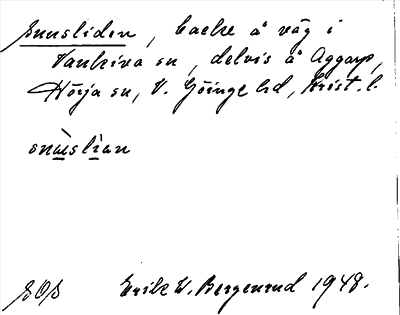 Snusliden, backe å väg i
Vankiva sn, delvis å Aggarp,
Hörja sn, V. Göinge hd, Krist. l.
snùslian
SOS Erik W. Bergenrud 1948.